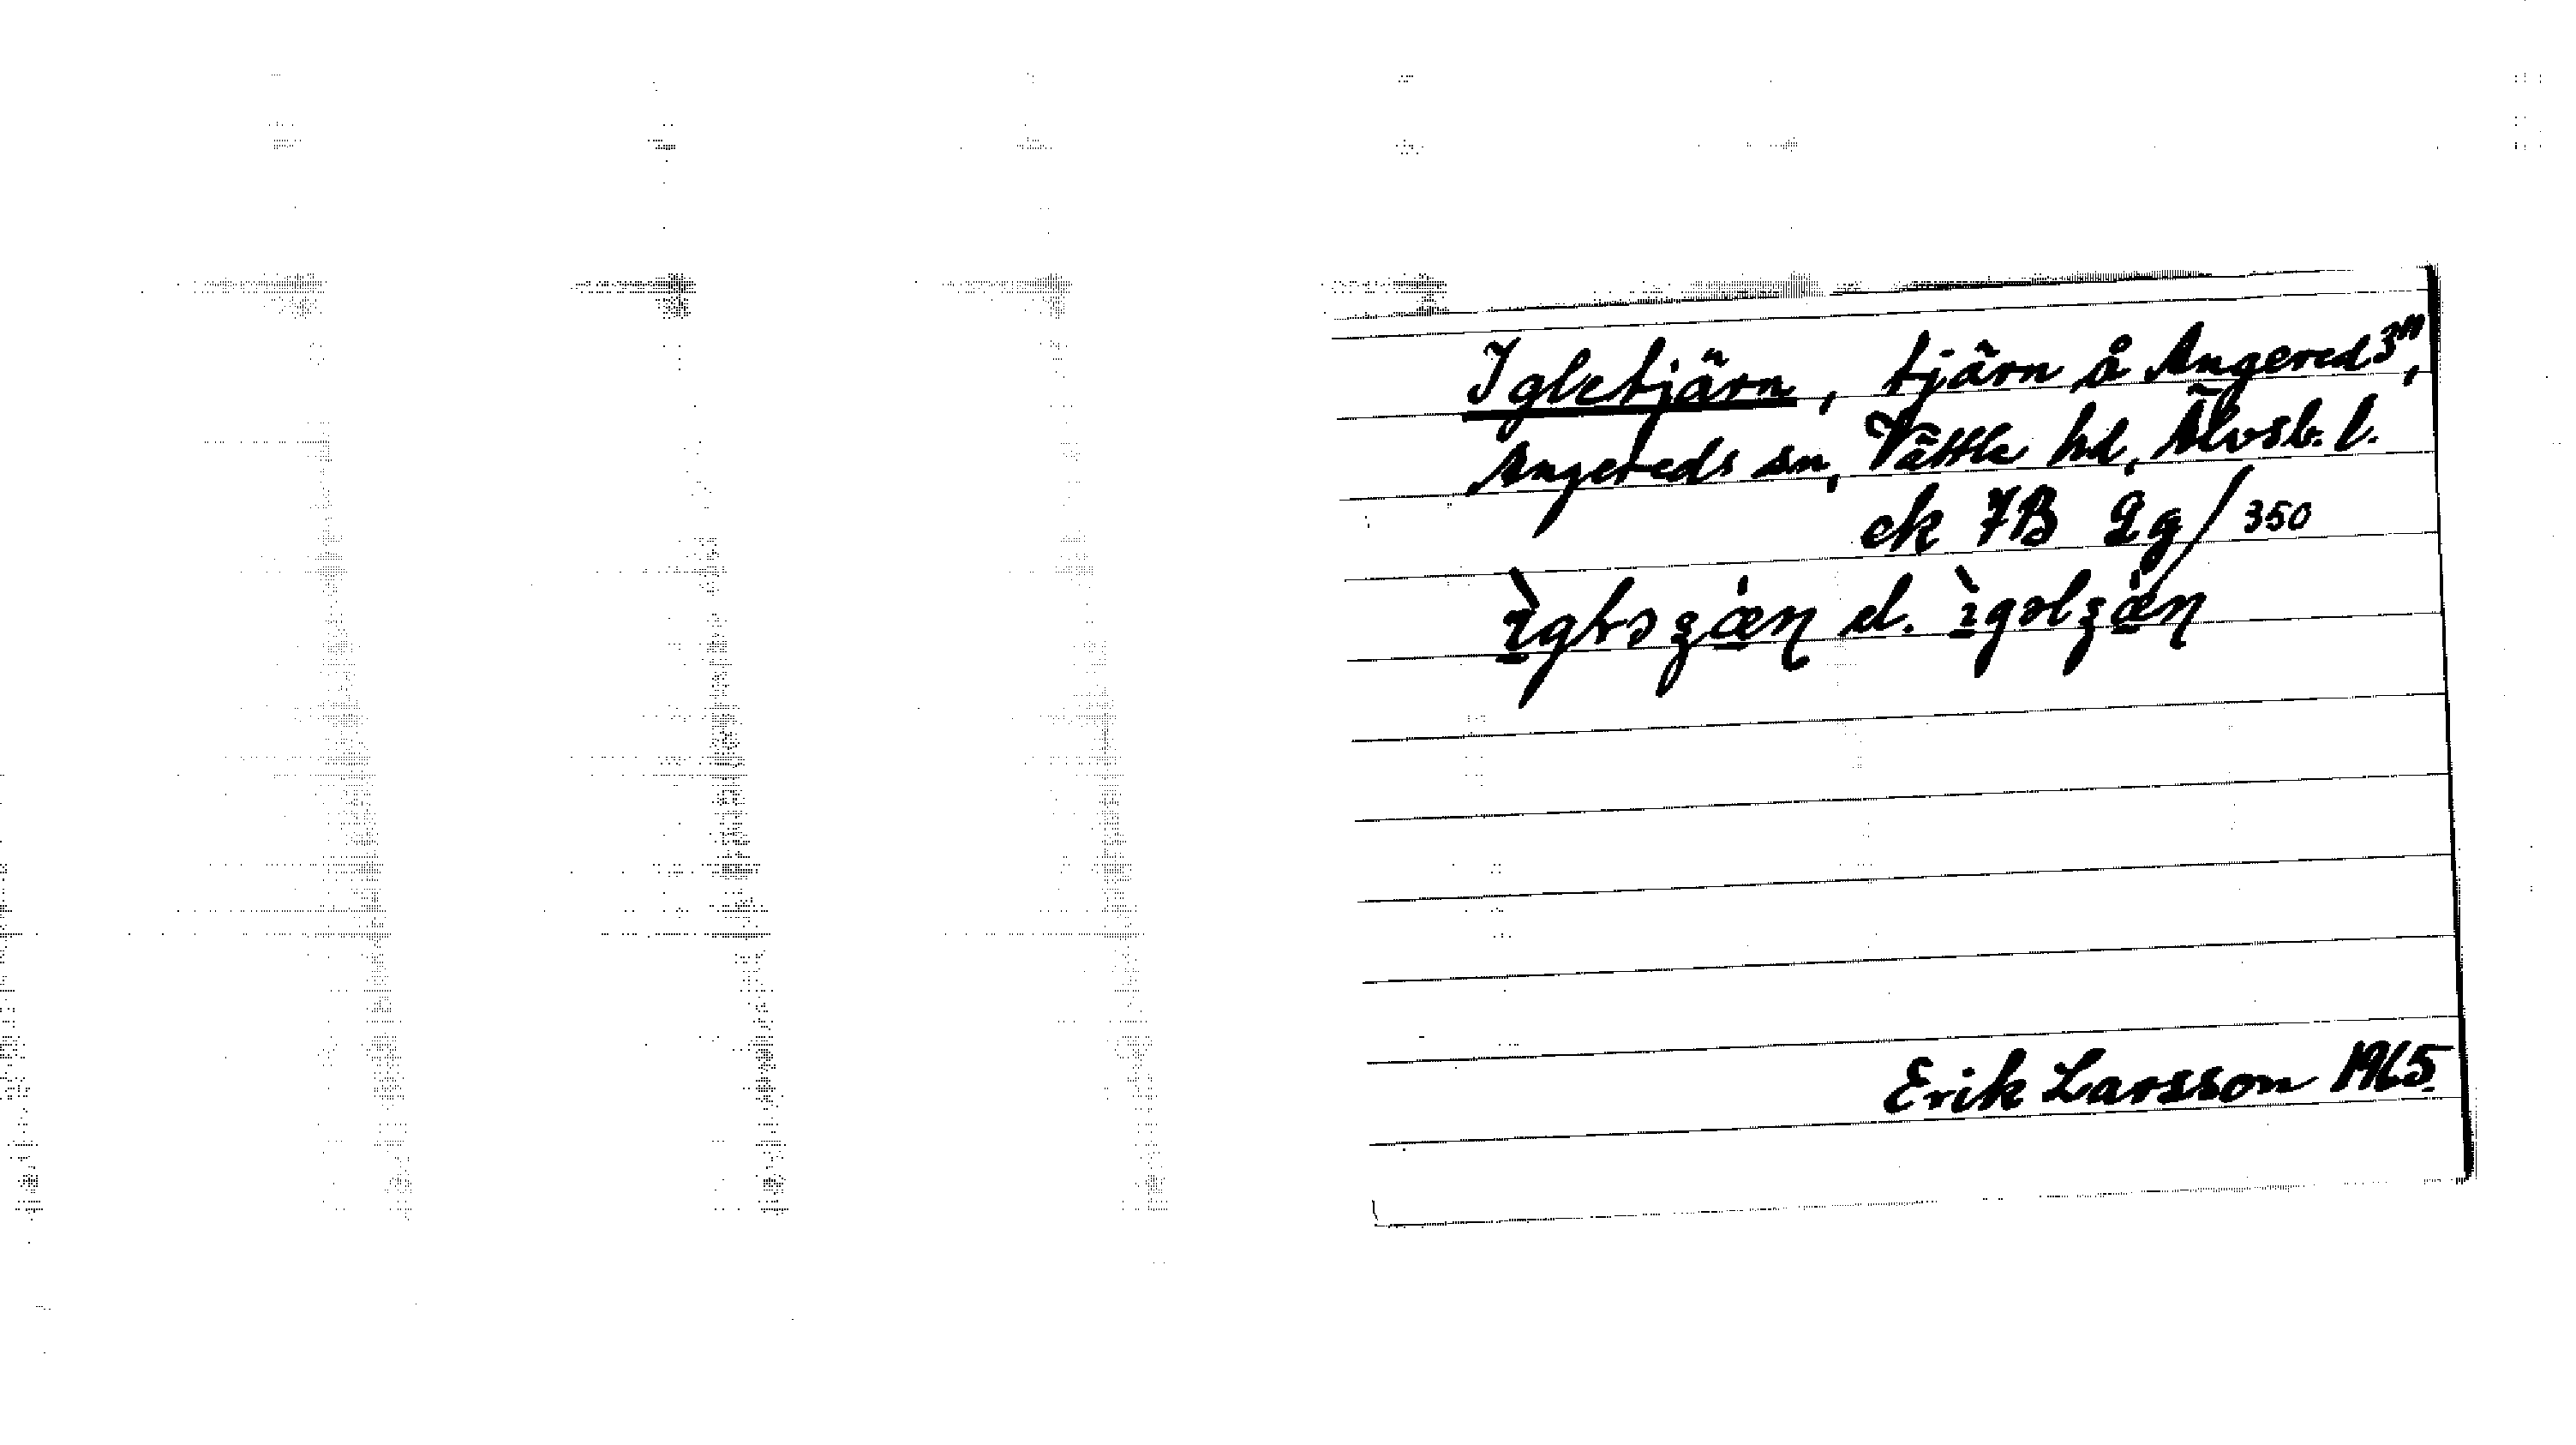 Igletjärn, tjärn å Angered 3ⁿ,
Angereds sn, Vättle hd, Älvsb. l.
ek 7B 2g/350
el.
Erik Larsson 1965.